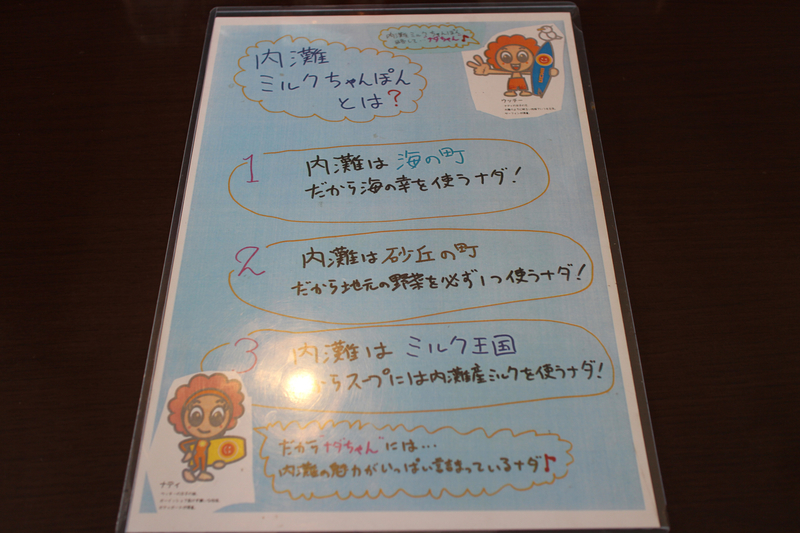 内灘
ミルクちゃんぽん
とは?
内灘ミルクちゃんぽん
ナダちゃん♪
1
内灘は海の町
だから海の幸を使うナダ!
2
内灘は砂丘の町
だから地元の野菜を必ず1つ使うナダ!
3
内灘はミルク王国
からスープには内灘産ミルクを使うナダ!
だからナダちゃんには…
内灘の魅力がいっぱい詰まっているナダ♪
ナディ